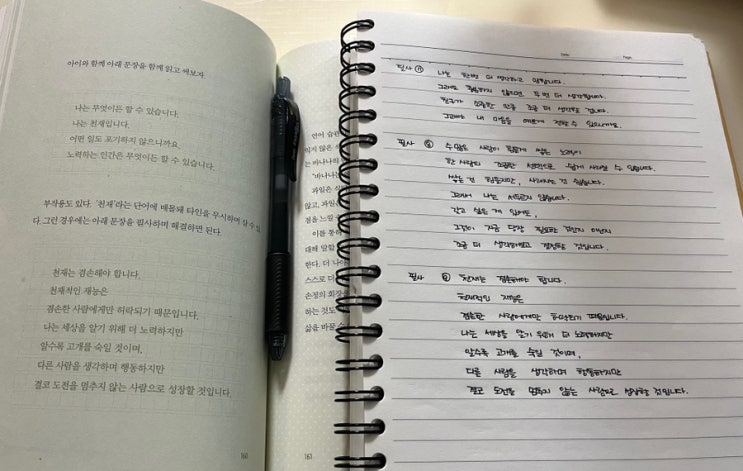 아이와 함께 아래 문장을 함께 읽고 써보자.
나는 무엇이든 할 수 있습니다.
나는 천재입니다.
어떤 일도 포기하지 않으니까요.
노력하는 인간은 무엇이든 할 수 있습니다.
부작용도 있다. '천재'라는 단어에 매몰돼 타인을 무시하며 살 수 있
다. 그런 경우에는 아래 문장을 필사하며 해결하면 된다.
천재는 겸손해야 합니다.
천재적인 재능은
겸손한 사람에게만 허락되기 때문입니다.
나는 세상을 알기 위해 더 노력하지만
알수록 고개를 숙일 것이며,
다른 사람을 생각하며 행동하지만
결코 도전을 멈추지 않는 사람으로 성장할 것입니다.
160
언어 습관
있지 않은
는 바나나의
'바나나
과일은
않고, 과일
점을 느낄
이를 통해
대해 말할
한다. 더 나아
스스로 더
손정의 회장
하는 것도
삶을 바꿀 수
161
Date
Page
필사
나는 한번 더 생각하고 말합니다.
그래도 필요하지 않으면 두 번 더 생각합니다.
친구가 소중한 만큼 조금 더 생각할 겁니다.
그래야 내 마음을 예쁘게 전할 수 있으니까요.
필사
수많은 사람이 힘들게 쌓은 노력이
한 사람의 조급한 선택으로 쉽게 사라질 수 있습니다.
쌓는 건 힘들지만, 사라지는 건 쉽습니다.
그래서 나는 서두르지 않습니다.
갖고 싶은 게 있어도,
그것이 지금 당장 필요한 것인지 아닌지
조금 더 생각하고 결정할 것입니다.
필사
천재는 겸손해야 합니다.
천재적인 재능은
겸손한 사람에게만 허락되기 때문입니다.
나는 세상을 알기 위해 더 노력하지만
알수록 고개를 숙일 것이며,
다른 사람을 생각하며 행동하지만
결코 도전을 멈추지 않는 사람으로 성장할 것입니다.